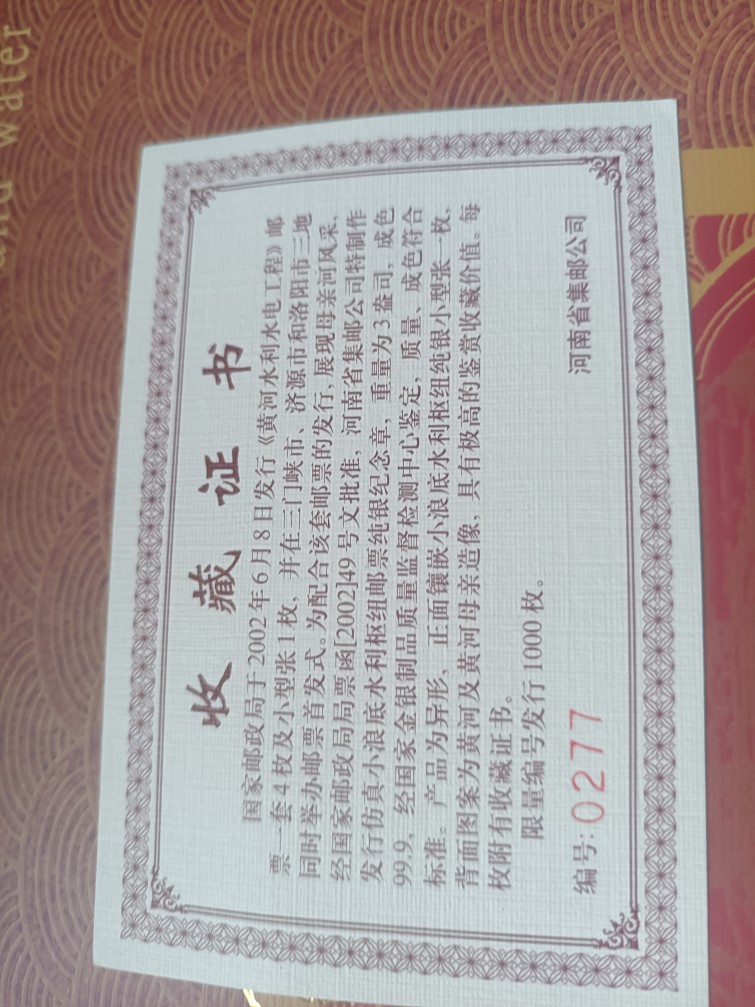 and water
收藏证书
国家邮政局于2002年6月8日发行《黄河水利水电工程》邮
票一套4枚及小型张1枚，并在三门峡市、济源市和洛阳市三地
同时举办邮票首发式。为配合该套邮票的发行，展现母亲河风采，
经国家邮政局局票函[2002]49号文批准，河南省集邮公司特制作
发行仿真小浪底水利枢纽邮票纯银纪念章，重量为3盎司，成色
99.9，经国家金银制品质量监督检测中心鉴定，质量、成色符合
标准。产品为异形，正面镶嵌小浪底水利枢纽纯银小型张一枚，
背面图案为黄河及黄河母亲造像，具有极高的鉴赏收藏价值。每
枚附有收藏证书。
限量编号发行1000枚。
编号：0277
河南省集邮公司